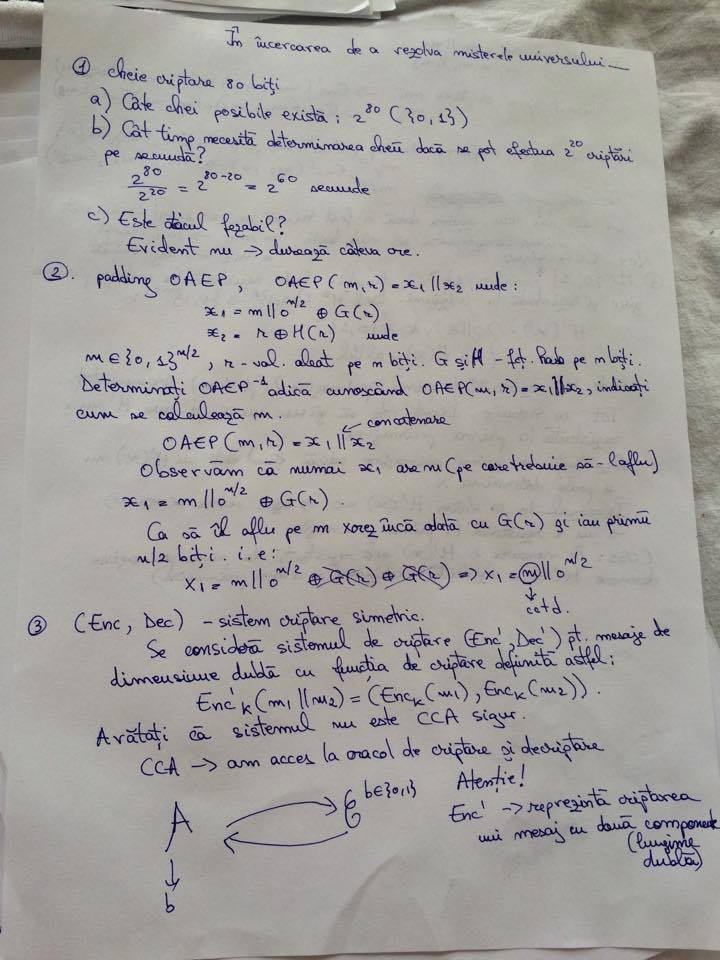 În încercarea de a rezolva misterele universului...
① cheie criptare 80 biți
a) Câte chei posibile există: 2^80 ({0,1})
b) Cât timp necesită determinarea cheii dacă se pot efectua 2^20 criptări
pe secundă?
2^80/2^20 = 2^(80-20) = 2^60 secunde
c) Este atacul fezabil?
Evident nu → durează câteva ore.
②. padding OAEP, OAEP(m,r) = x₁||x₂ unde:
x₁ = m||0^(n/2) ⊕ G(r)
x₂ = r ⊕ H(r) unde
m ∈ {0,1}^(n/2), r - val. aleat pe n biți. G și H - fcț. hash pe n biți.
Determinați OAEP⁻¹ adică cunoscând OAEP(m,r) = x₁||x₂, indicați
cum se calculează m.
concatenare
OAEP(m,r) = x₁||x₂
Observăm că numai x₁ are m (pe care trebuie să-l aflu)
x₁ = m||0^(n/2) ⊕ G(r).
Ca să îl aflu pe m xorez încă odată cu G(r) și iau primii
n/2 biți. i.e:
x₁ = m||0^(n/2) ⊕ G(r) ⊕ G(r) => x₁ = m||0^(n/2)
cctd.
③ (Enc, Dec) - sistem criptare simetric.
Se consideră sistemul de criptare (Enc', Dec') pt. mesaje de
dimensiune dublă cu funcția de criptare definită astfel:
Enc'ₖ(m₁||m₂) = (Encₖ(m₁), Encₖ(m₂)).
Arătați că sistemul nu este CCA sigur.
CCA → am acces la oracol de criptare și decriptare
A
C b∈{0,1}
b
Atenție!
Enc' → reprezintă criptarea
unui mesaj cu două componente
(lungime
dublă)